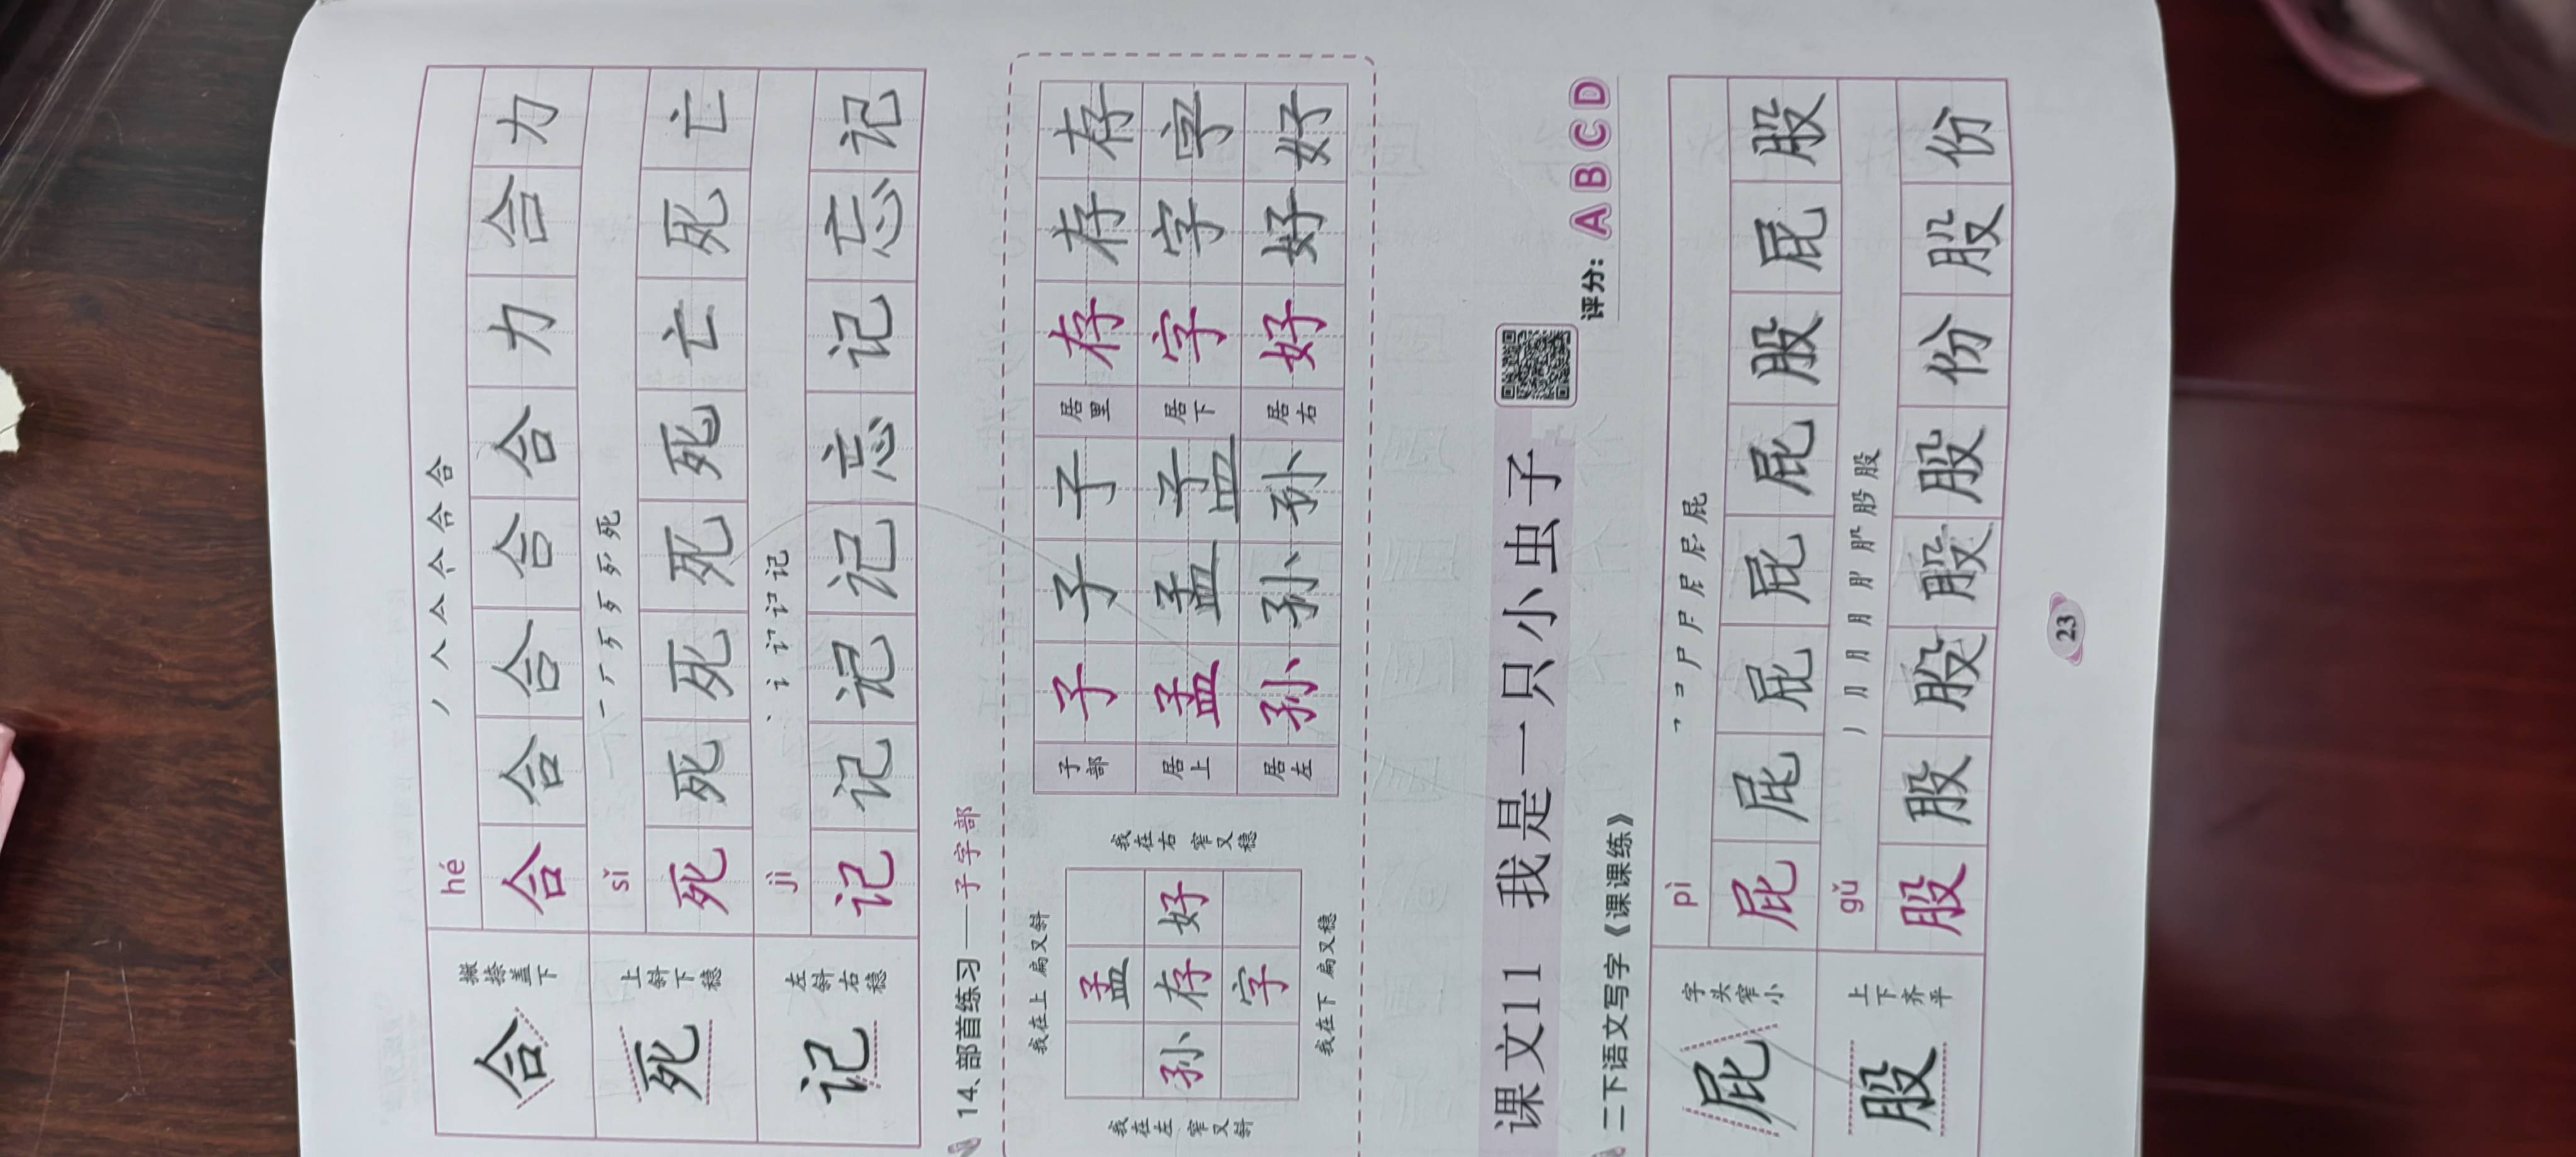 hé ノ 人 亼 亼 合 合
合 撇捺盖下 合 合 合 合 合 力 合 力
sǐ 一 厂 歹 歹 死 死
死 上斜下稳 死 死 死 死 死 亡 死 亡
jì 丶 讠 订 记 记
记 左斜右稳 记 记 记 记 忘 记 忘 记
14、部首练习——子字部
我在上 扁又斜
我在左 窄又斜
孟
孙 存 好
字
我在右 窄又稳
我在下 扁又稳
子部 子 子 子 居里 存 存 存
居上 孟 孟 孟 居下 字 字 字
居左 孙 孙 孙 居右 好 好 好
课文11 我是一只小虫子
二下语文写字《课课练》 评分： A B C D
pì ㇕ コ 尸 尸 屁 屁 屁
屁 字头窄小 屁 屁 屁 屁 屁 股 屁 股
gǔ 丿 月 月 月 股 股 股 股
股 上下齐平 股 股 股 股 股 份 股 份
23